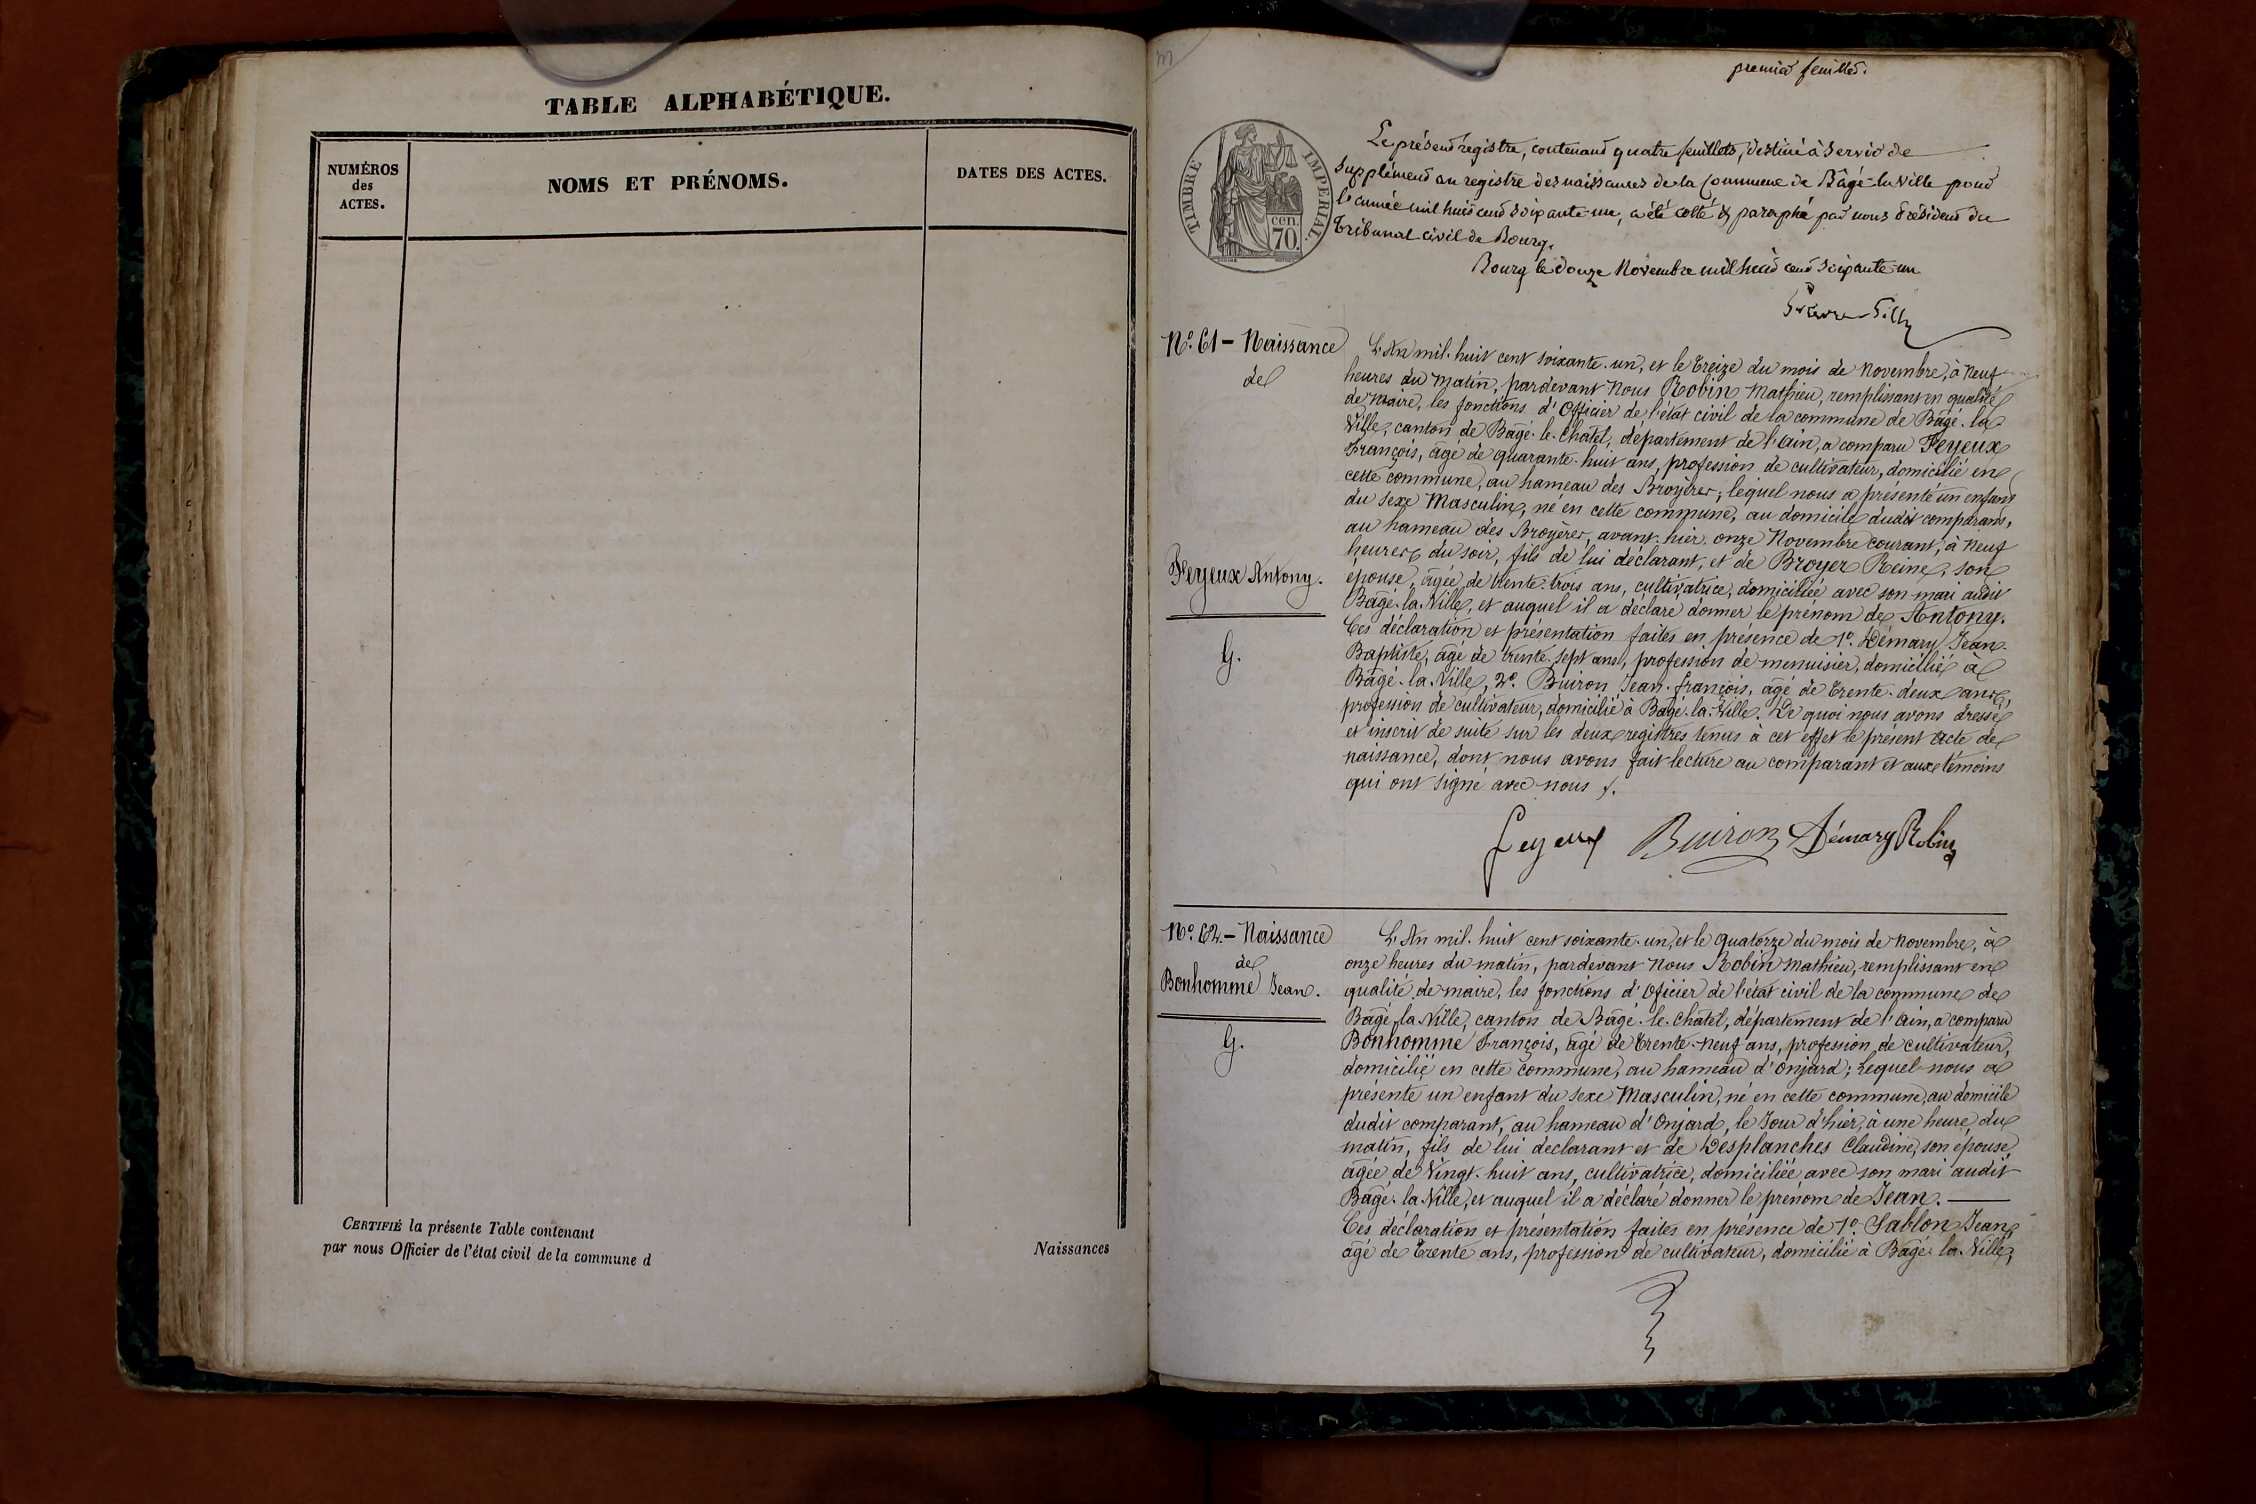 TABLE ALPHABÉTIQUE.
NUMÉROS
des
ACTES.
NOMS ET PRÉNOMS.
DATES DES ACTES.
CERTIFIÉ la présente Table contenant
par nous Officier de l'état civil de la commune d
Naissances
premier feuillet.
TIMBRE IMPERIAL.
cen.
70.
Le présent registre, contenant quatre feuillets, destiné à servir de
supplément au registre des naissances de la Commune de Bâgé-la Ville pour
l'année mil huit cent soixante-un, a été coté & paraphé par nous Président du
Tribunal civil de Bourg.
Bourg le douze Novembre mil huit cent soixante-un
Nº. 61 - Naissance
de
Feyeux Antony.
G.
L'An mil-huit cent soixante-un, et le treize du mois de Novembre, à neuf
heures du matin, pardevant Nous Robin Mathieu, remplissant en qualité
de maire, les fonctions d'Officier de l'état civil de la commune de Bâgé-la
Ville, canton de Bâgé-le-Châtel, département de l'ain, a comparu Feyeux
François, âgé de quarante-huit ans, profession de cultivateur, domicilié en
cette commune, au hameau des Broyères; lequel nous a présenté un enfant
du sexe Masculin, né en cette commune, au domicile dudit comparant,
au hameau des Broyères, avant-hier onze Novembre courant, à Neuf
heures du soir, fils de lui déclarant, et de Broyer Reine, son
épouse, âgée de trente-trois ans, cultivatrice, domiciliée avec son mari audit
Bâgé-la-Ville, et auquel il a déclaré donner le prénom de Antony.
Ces déclaration et présentation faites en présence de 1º. Démary Jean-
Baptiste, âgé de trente-sept ans, profession de menuisier, domicilié à
Bâgé-la-Ville, 2º. Buiron Jean-françois, âgé de trente-deux ans,
profession de cultivateur, domicilié à Bâgé-la-Ville. De quoi nous avons dressé
et inscrit de suite sur les deux registres tenus à cet effet le présent acte de
naissance, dont nous avons fait lecture au comparant et aux témoins
qui ont signé avec nous.
Feyeux Buiron Démary Robin
Nº. 62. - Naissance
de
Bonhomme Jean.
G.
L'An mil-huit cent soixante-un, et le quatorze du mois de novembre, à
onze heures du matin, pardevant Nous Robin Mathieu, remplissant en
qualité de maire, les fonctions d'Oficier de l'état civil de la commune de
Bâgé-la Ville, canton de Bâgé-le-Châtel, département de l'ain, a comparu
Bonhomme François, âgé de trente-neuf ans, profession de cultivateur,
domicilié en cette commune, au hameau d'Onjard; Lequel nous a
présenté un enfant du sexe Masculin, né en cette commune, au domicile
dudit comparant, au hameau d'Onjard, le Jour d'hier, à une heure du
matin, fils de lui déclarant et de Desplanches Claudine, son épouse,
âgée de Vingt-huit ans, cultivatrice, domiciliée avec son mari audit
Bâgé-la Ville, et auquel il a déclaré donner le prénom de Jean.
Ces déclaration et présentation faites en présence de 1º. Sablon Jean,
âgé de trente ans, profession de cultivateur, domicilié à Bâgé-la-Ville,